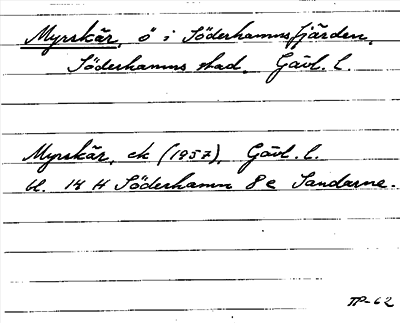 Myrskär, ö i Söderhamnsfjärden,
Söderhamns stad, Gävl. l.
Myrskär, ek (1957), Gävl. l.
bl. 14 H Söderhamn 8 e Sandarne.
TP-62